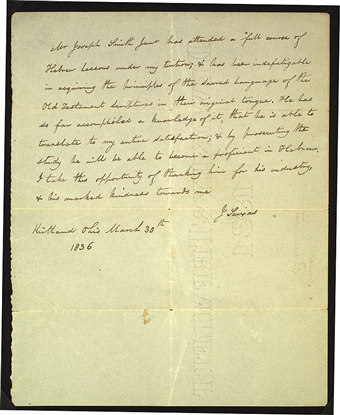 Mr Joseph Smith Junr has attended a full course of
Hebrew Lessons under my tuition; & has been indefatigable
in acquiring the principles of the sacred language of the
Old Testament Scriptures in their original tongue. He has
so far accomplished a knowledge of it, that he is able to
translate to my entire satisfaction; & by prosecuting the
study he will be able to become a proficient in Hebrew.
I take this opportunity of thanking him for his industry,
& his marked kindness towards me
J Seixas
Kirtland Ohio March 30th
1836